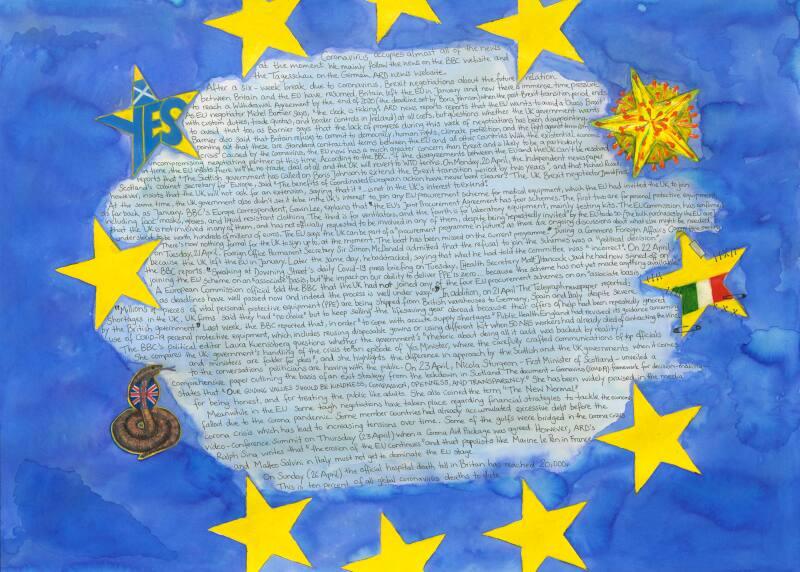 YES
Coronavirus occupies almost all of the news
at the moment. We mainly follow the news on the BBC website and
the Tagesschau on the German ARD news website.
After a six-week break due to coronavirus, Brexit negotiations about the future relation
between Britain and the EU have resumed. Britain left the EU in January and now there is immense time pressure
to reach a Withdrawal Agreement by the end of 2020 (the deadline set by Boris Johnson), when the post Brexit transition period ends.
As EU negotiator Michel Barnier says, "the clock is ticking". ARD news reports that the EU wants to avoid a Chaos Brexit
with custom duties, trade quotas, and border controls (in Ireland) at all costs, but questions whether the UK government wants
to avoid that too as Barnier says that the lack of progress during this week of negotiations had been disappointing.
Barnier also said that Britain refuses to commit to democracy, human rights, climate protection, and the fight against terrorism,
pointing out that these are standard contractual terms between the EU and all other countries. With the existential
crisis caused by the coronavirus, the EU now has a much greater concern than Brexit and is likely to be a particularly
uncompromising negotiating partner at this time. According to the BBC, "if the disagreements between the EU and the UK can't be resolved
in time, the EU insists there will be no trade deal at all and the UK will revert to WTO terms". On Monday, 20 April, the Independent newspaper
reports that "The Scottish government has called on Boris Johnson to extend the Brexit transition period by two years", and that Michael Russell,
Scotland's cabinet secretary for Europe, said "The benefits of continued European co-operation have never been clearer". The UK Brexit negotiator David Frost,
however, insists that the UK will not ask for an extension, saying that it "is not in the UK's interest to extend".
At the same time, the UK government also didn't see it to be in the UK's interest to join any EU procurement scheme for medical equipment, which the EU had invited the UK to join
as far back as January. BBC's Europe correspondent, Gavin Lee, explains that "the EU's 'Joint Procurement Agreement' has four schemes. The first two are for personal protective equipment,
including face masks, gloves, and liquid resistant clothing. The third is for ventilators, and the fourth is for laboratory equipment, mainly testing kits. The EU Commission confirms
that the UK is not involved in any of them, and has not officially requested to be involved in any of them, despite being 'repeatedly invited' by the EU to do so. The bulk purchases by the EU are
understood to be worth hundreds of millions of euros. The EU says the UK can be part of a 'procurement programme in future', as there are ongoing discussions about what else might be needed,
there's now nothing formal for the UK to sign up to, at the moment. The boat has been missed on the current programme." During a Commons Foreign Affairs Committee
on Tuesday, 21 April, Foreign Office Permanent Secretary Sir Simon McDonald admitted that the refusal to join the schemes was a "political decision"
because the UK left the EU in January. Later the same day, he backtracked, saying that what he had told the committee, was "incorrect". On 22 April
the BBC reports: "Speaking at Downing Street's daily Covid-19 press briefing on Tuesday, Health Secretary Matt Hancock said he had now signed off on
joining the EU Scheme on an 'associate basis' but 'the impact on our ability to deliver PPE is zero' because the scheme has not yet made anything available".
A European Commission official told the BBC that the UK had not joined any of the four EU procurement schemes, on an 'associate basis' or otherwise
as deadlines have well passed now and indeed the process is well under way". In addition, on 21 April The Telegraph newspaper reported:
"Millions of pieces of vital personal protective equipment (PPE) are being shipped from British warehouses to Germany, Spain and Italy despite severe
shortages in the UK. UK firms said they had "no choice" but to keep selling the lifesaving gear abroad because their offers of help had been repeatedly ignored
by the British government". Last week, the BBC reported that, in order "to cope with acute supply shortages" Public Health England had revised its guidance concerning
use of COVID-19 personal protective equipment, which includes reusing disposable gowns or using different kit when 50 NHS workers had already died contracting the virus.
The BBC's political editor Laura Kuenssberg questions whether the government's "rhetoric about doing all it could was backed by reality".
She compares the UK government's handling of the crisis to an episode of 'Yes Minister', where the carefully crafted communications of top officials
and ministers are "fodder for jokes", and she highlights the difference in approach by the Scottish and the UK governments when it comes
to the conversations politicians are having with the public. On 23 April, Nicola Sturgeon - First Minister of Scotland - unveiled a
comprehensive paper outlining the basis of an exit strategy from the lockdown in Scotland. The document - Coronavirus (COVID-19): framework for decision-making -
states that "OUR GUIDING VALUES SHOULD BE KINDNESS, COMPASSION, OPENNESS, AND TRANSPARENCY". She has been widely praised in the media
for being honest, and for treating the public like adults. She also coined the term "The New Normal".
Meanwhile in the EU: Some tough negotiations have taken place regarding financial strategies to tackle the economic
fallout due to the corona pandemic. Some member countries had already accumulated excessive debt before the
corona crisis which has lead to increasing tensions over time. Some of the gulfs were bridged in the Corona Crisis
video-conference Summit on Thursday (23 April) when a Corona Aid Package was agreed. However, ARD's
Ralph Sina writes that "the erosion of the EU continues" and that populists like Marine le Pen in France
and Matteo Salvini in Italy must not get to dominate the EU stage.
On Sunday (26 April) the official hospital death toll in Britain has reached 20,000.
This is ten percent of all global coronavirus deaths to date.